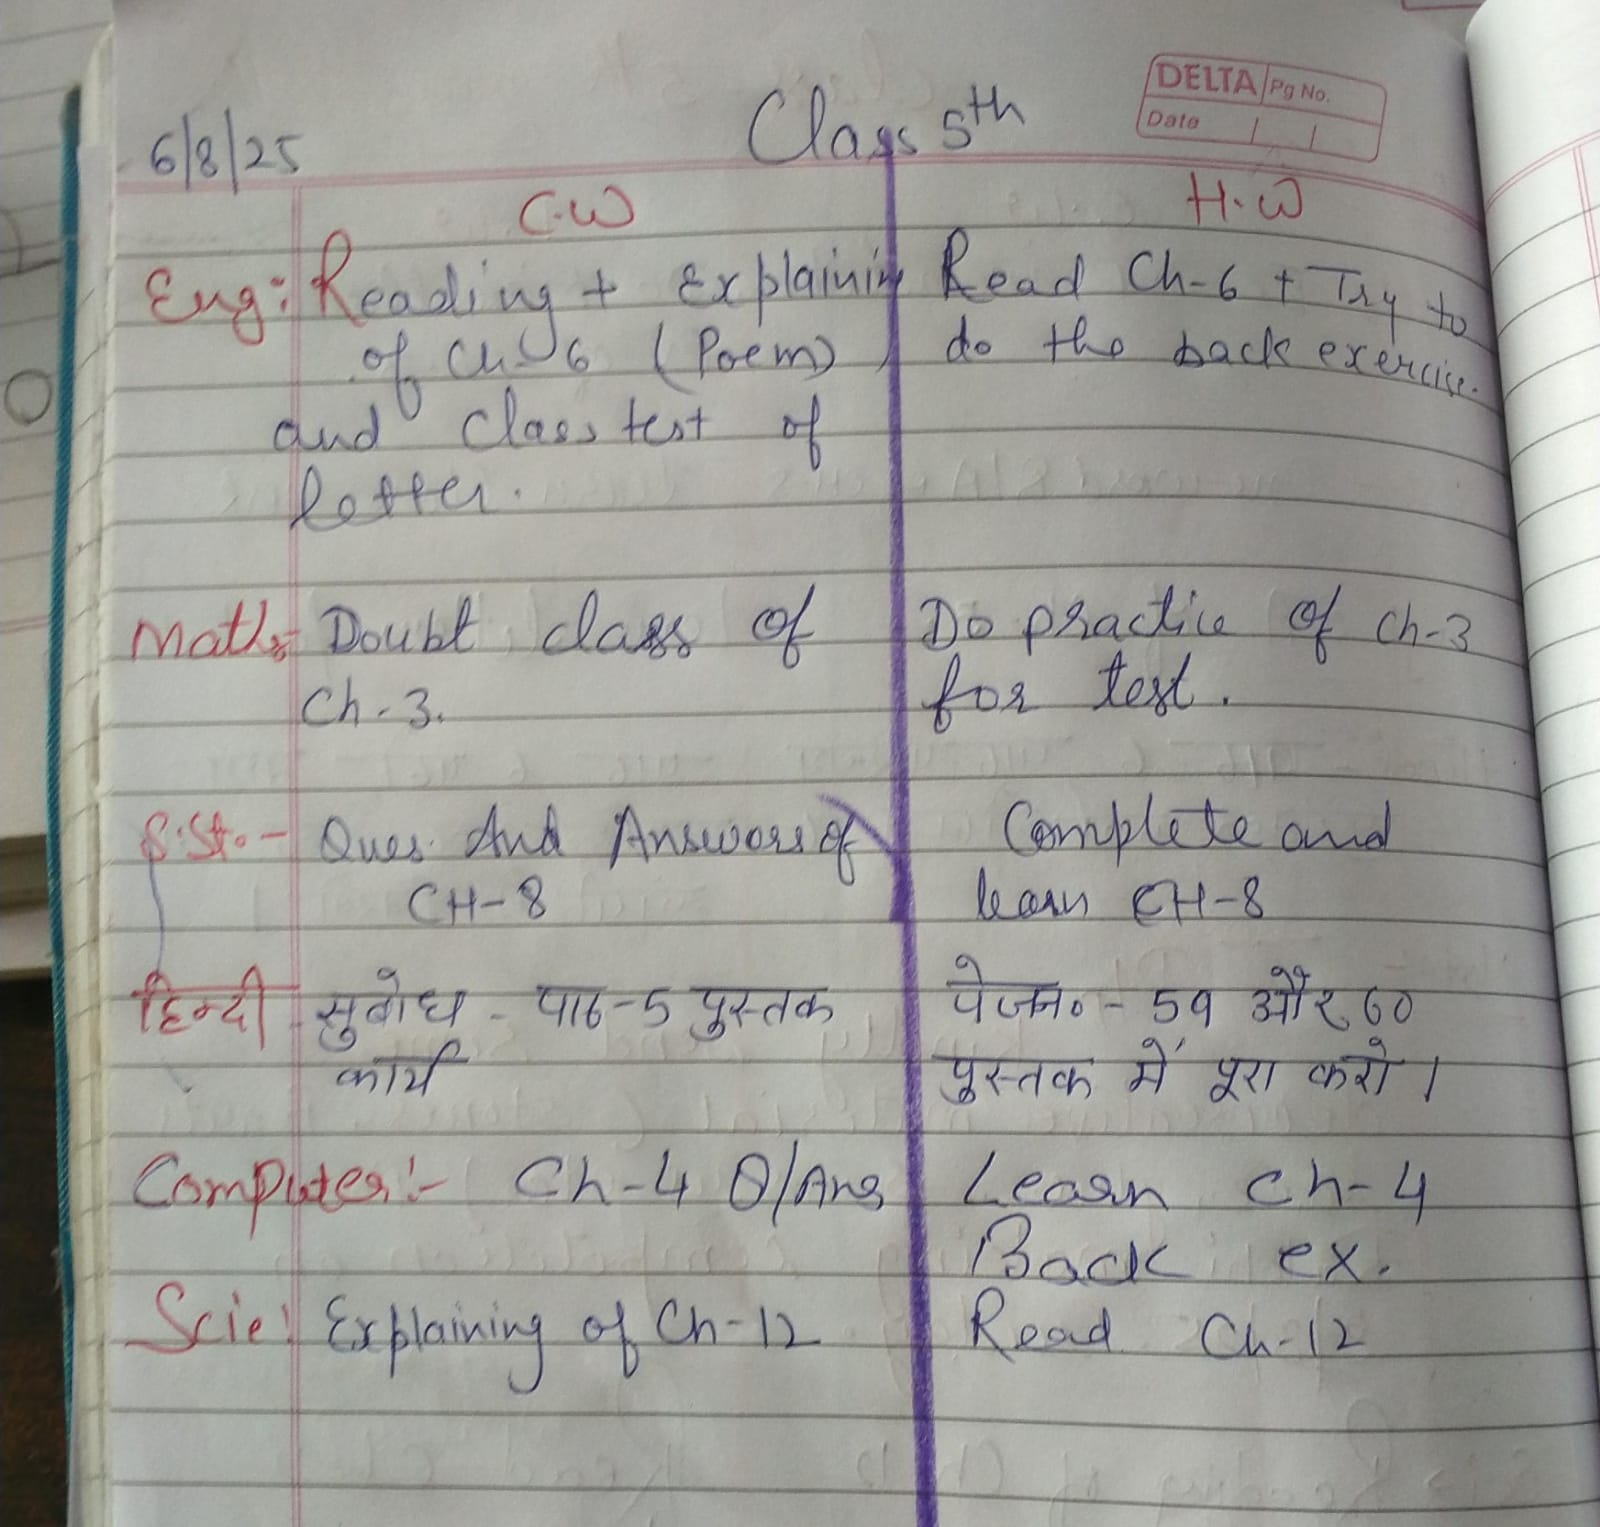 DELTA Pg No.
Date / /
6/8/25 Class 5th
C.W H.W
Eng: Reading + Explaining Read Ch-6 + Try to
of Ch-6 (Poem) do the back exercise.
and Class test of
letter.
Maths Doubt class of Do practice of Ch-3
Ch-3. for test.
S.St.- Ques And Answers of Complete and
CH-8 learn CH-8
हिन्दी - सुबोध - पाठ-5 पुस्तक पेज न० - 59 और 60
कार्य पुस्तक में पूरा करो।
Computer:- Ch-4 Q/Ans Learn Ch-4
Back ex.
Scie: Explaining of Ch-12 Read Ch-12